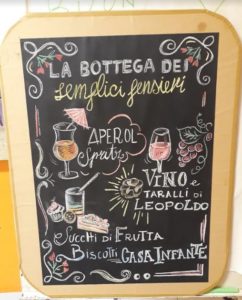 LA BOTTEGA DEI
semplici pensieri
APEROL
Spritz
VINO e
TARALLI DI
LEOPOLDO
Succhi di FRUTTA
BISCOTTI CASA INFANTE